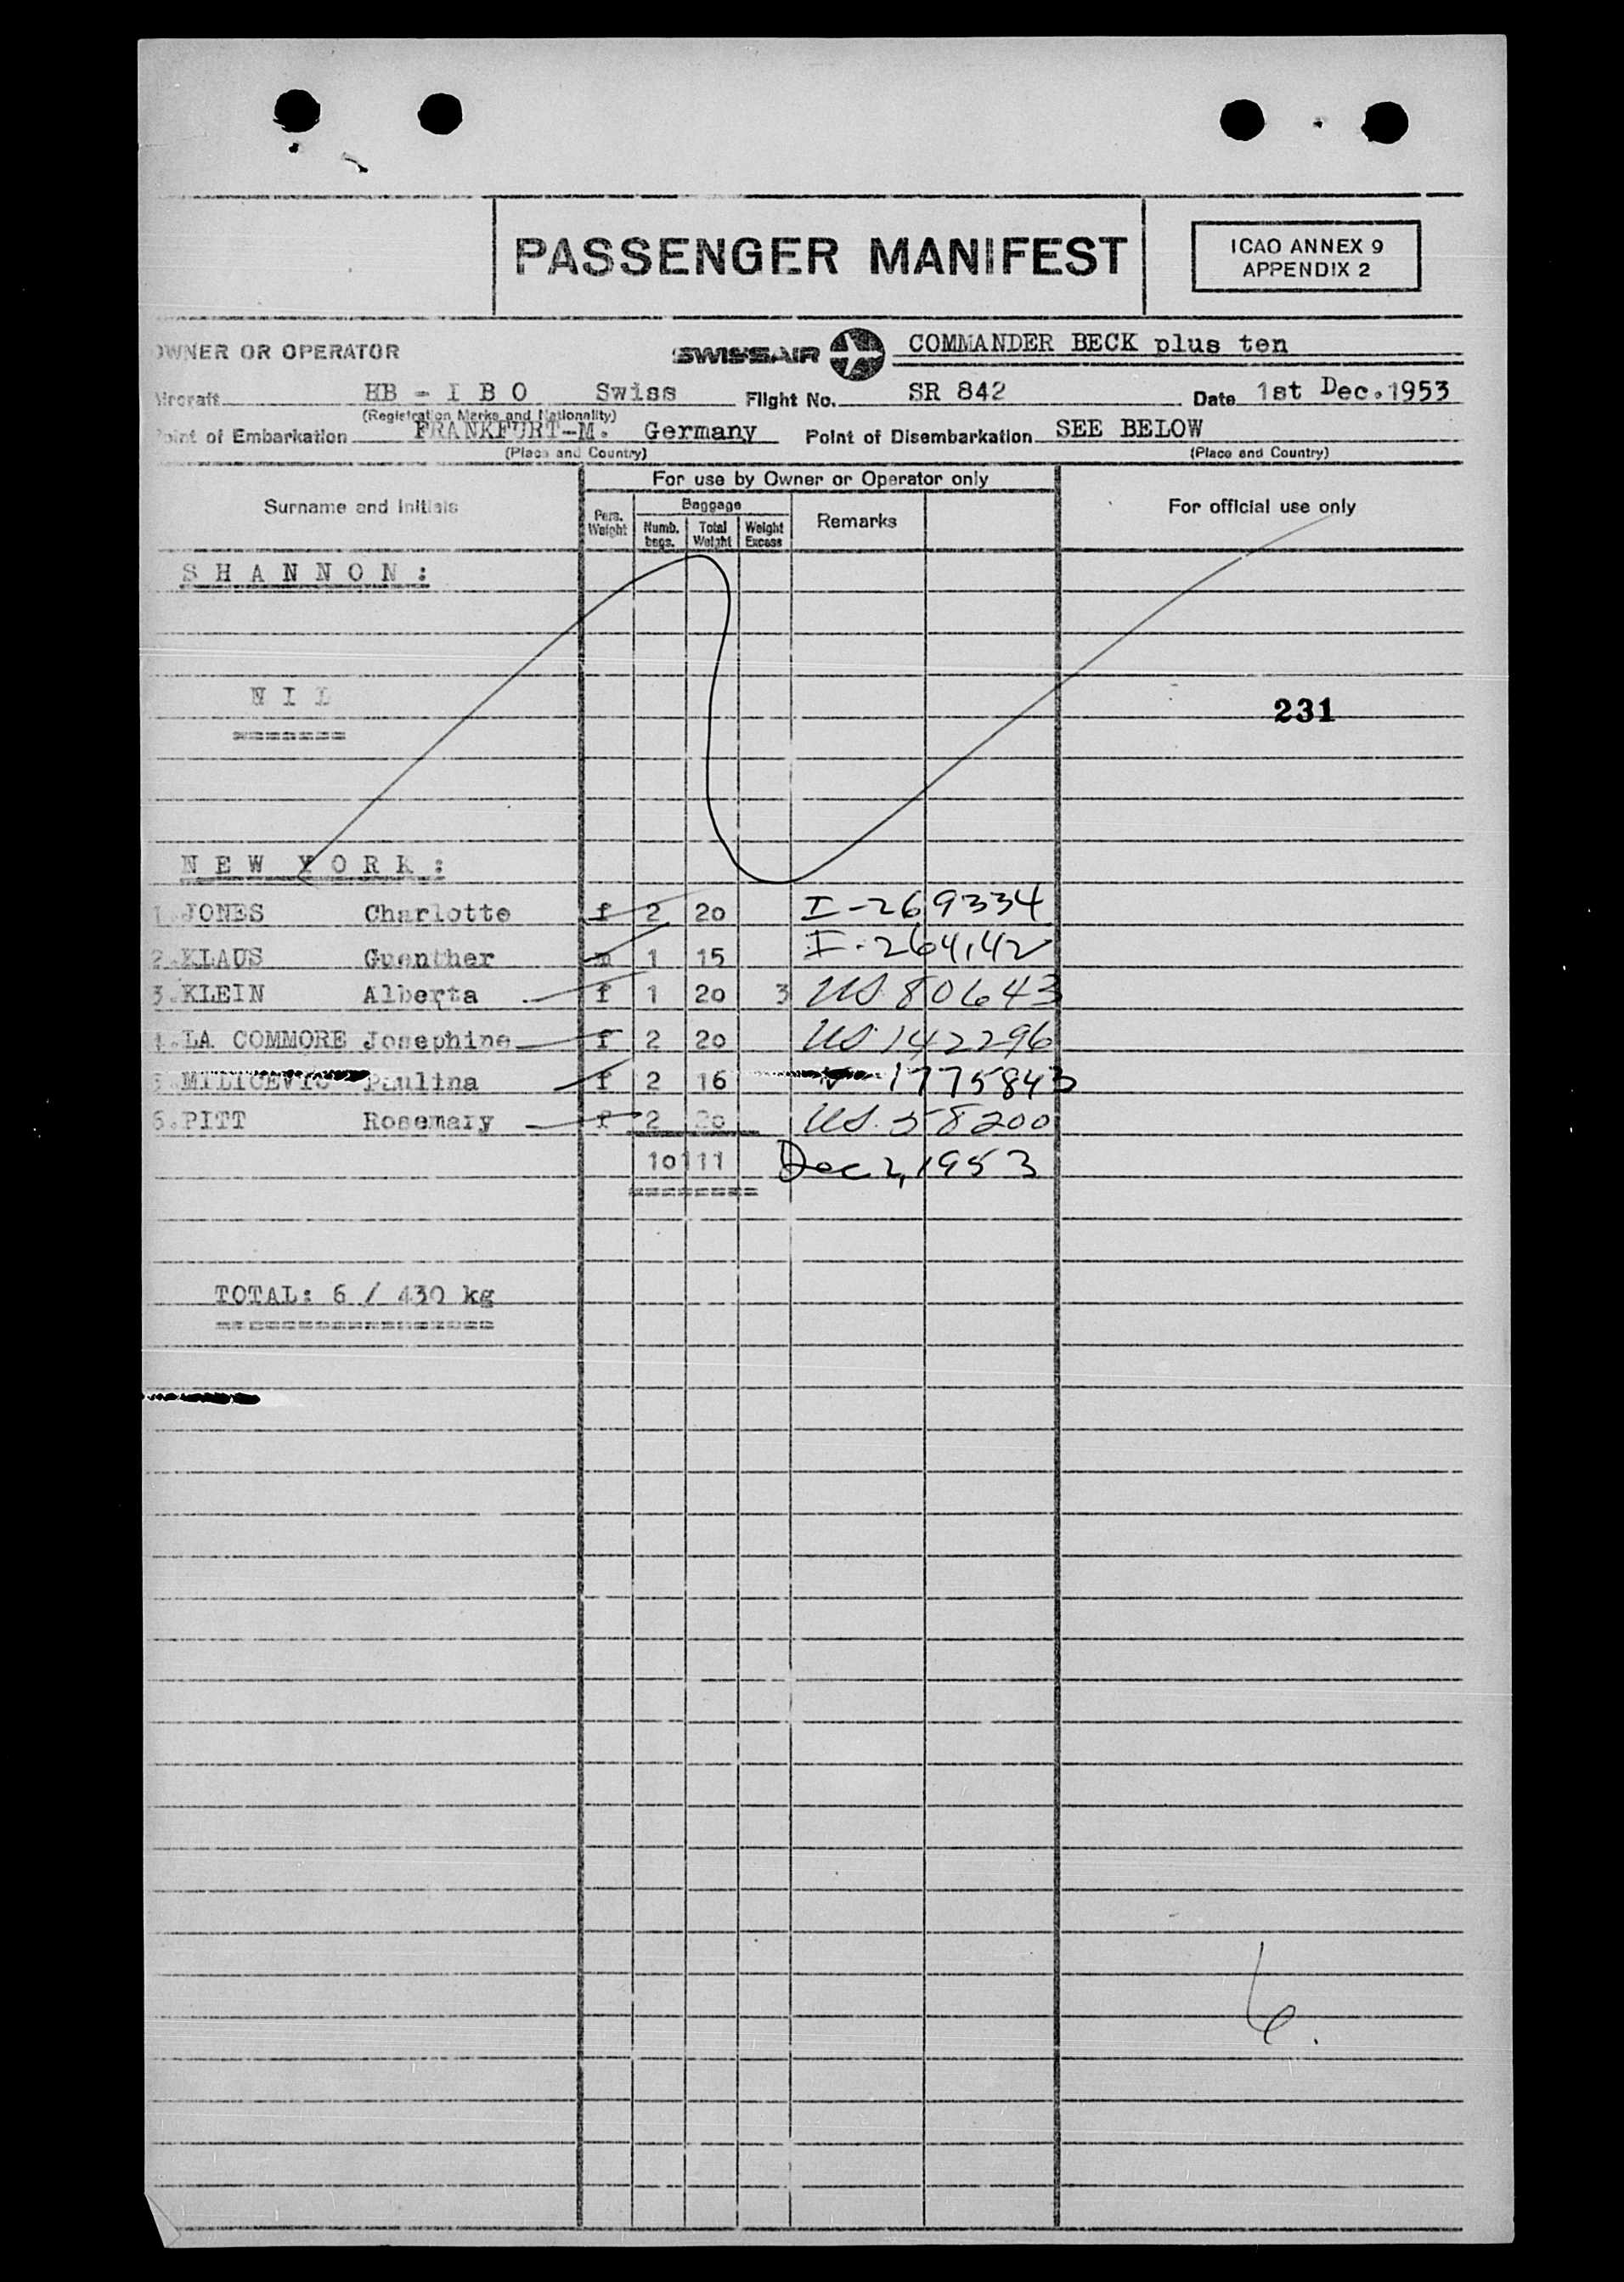 PASSENGER MANIFEST
ICAO ANNEX 9
APPENDIX 2
OWNER OR OPERATOR SWISSAIR COMMANDER BECK plus ten
Aircraft HB - I B O Swiss Flight No. SR 842 Date 1st Dec.1953
(Registration Marks and Nationality)
Point of Embarkation FRANKFURT-M. Germany Point of Disembarkation SEE BELOW
(Place and Country) (Place and Country)
For use by Owner or Operator only
Surname and Initials Pers. Weight Baggage Remarks For official use only
Numb. bags. Total Weight Weight Excess
S H A N N O N :
N I L
231
N E W Y O R K :
1.JONES Charlotte f 2 20 I-269334
2.KLAUS Guenther m 1 15 I-264142
3.KLEIN Alberta f 1 20 3 US 80643
4.LA COMMORE Josephine f 2 20 US 142296
5.MILICEVIC Paulina f 2 16 V 1775843
6.PITT Rosemary f 2 20 US. 58200
10 111 Dec 2, 1953
TOTAL: 6 / 430 kg
6.